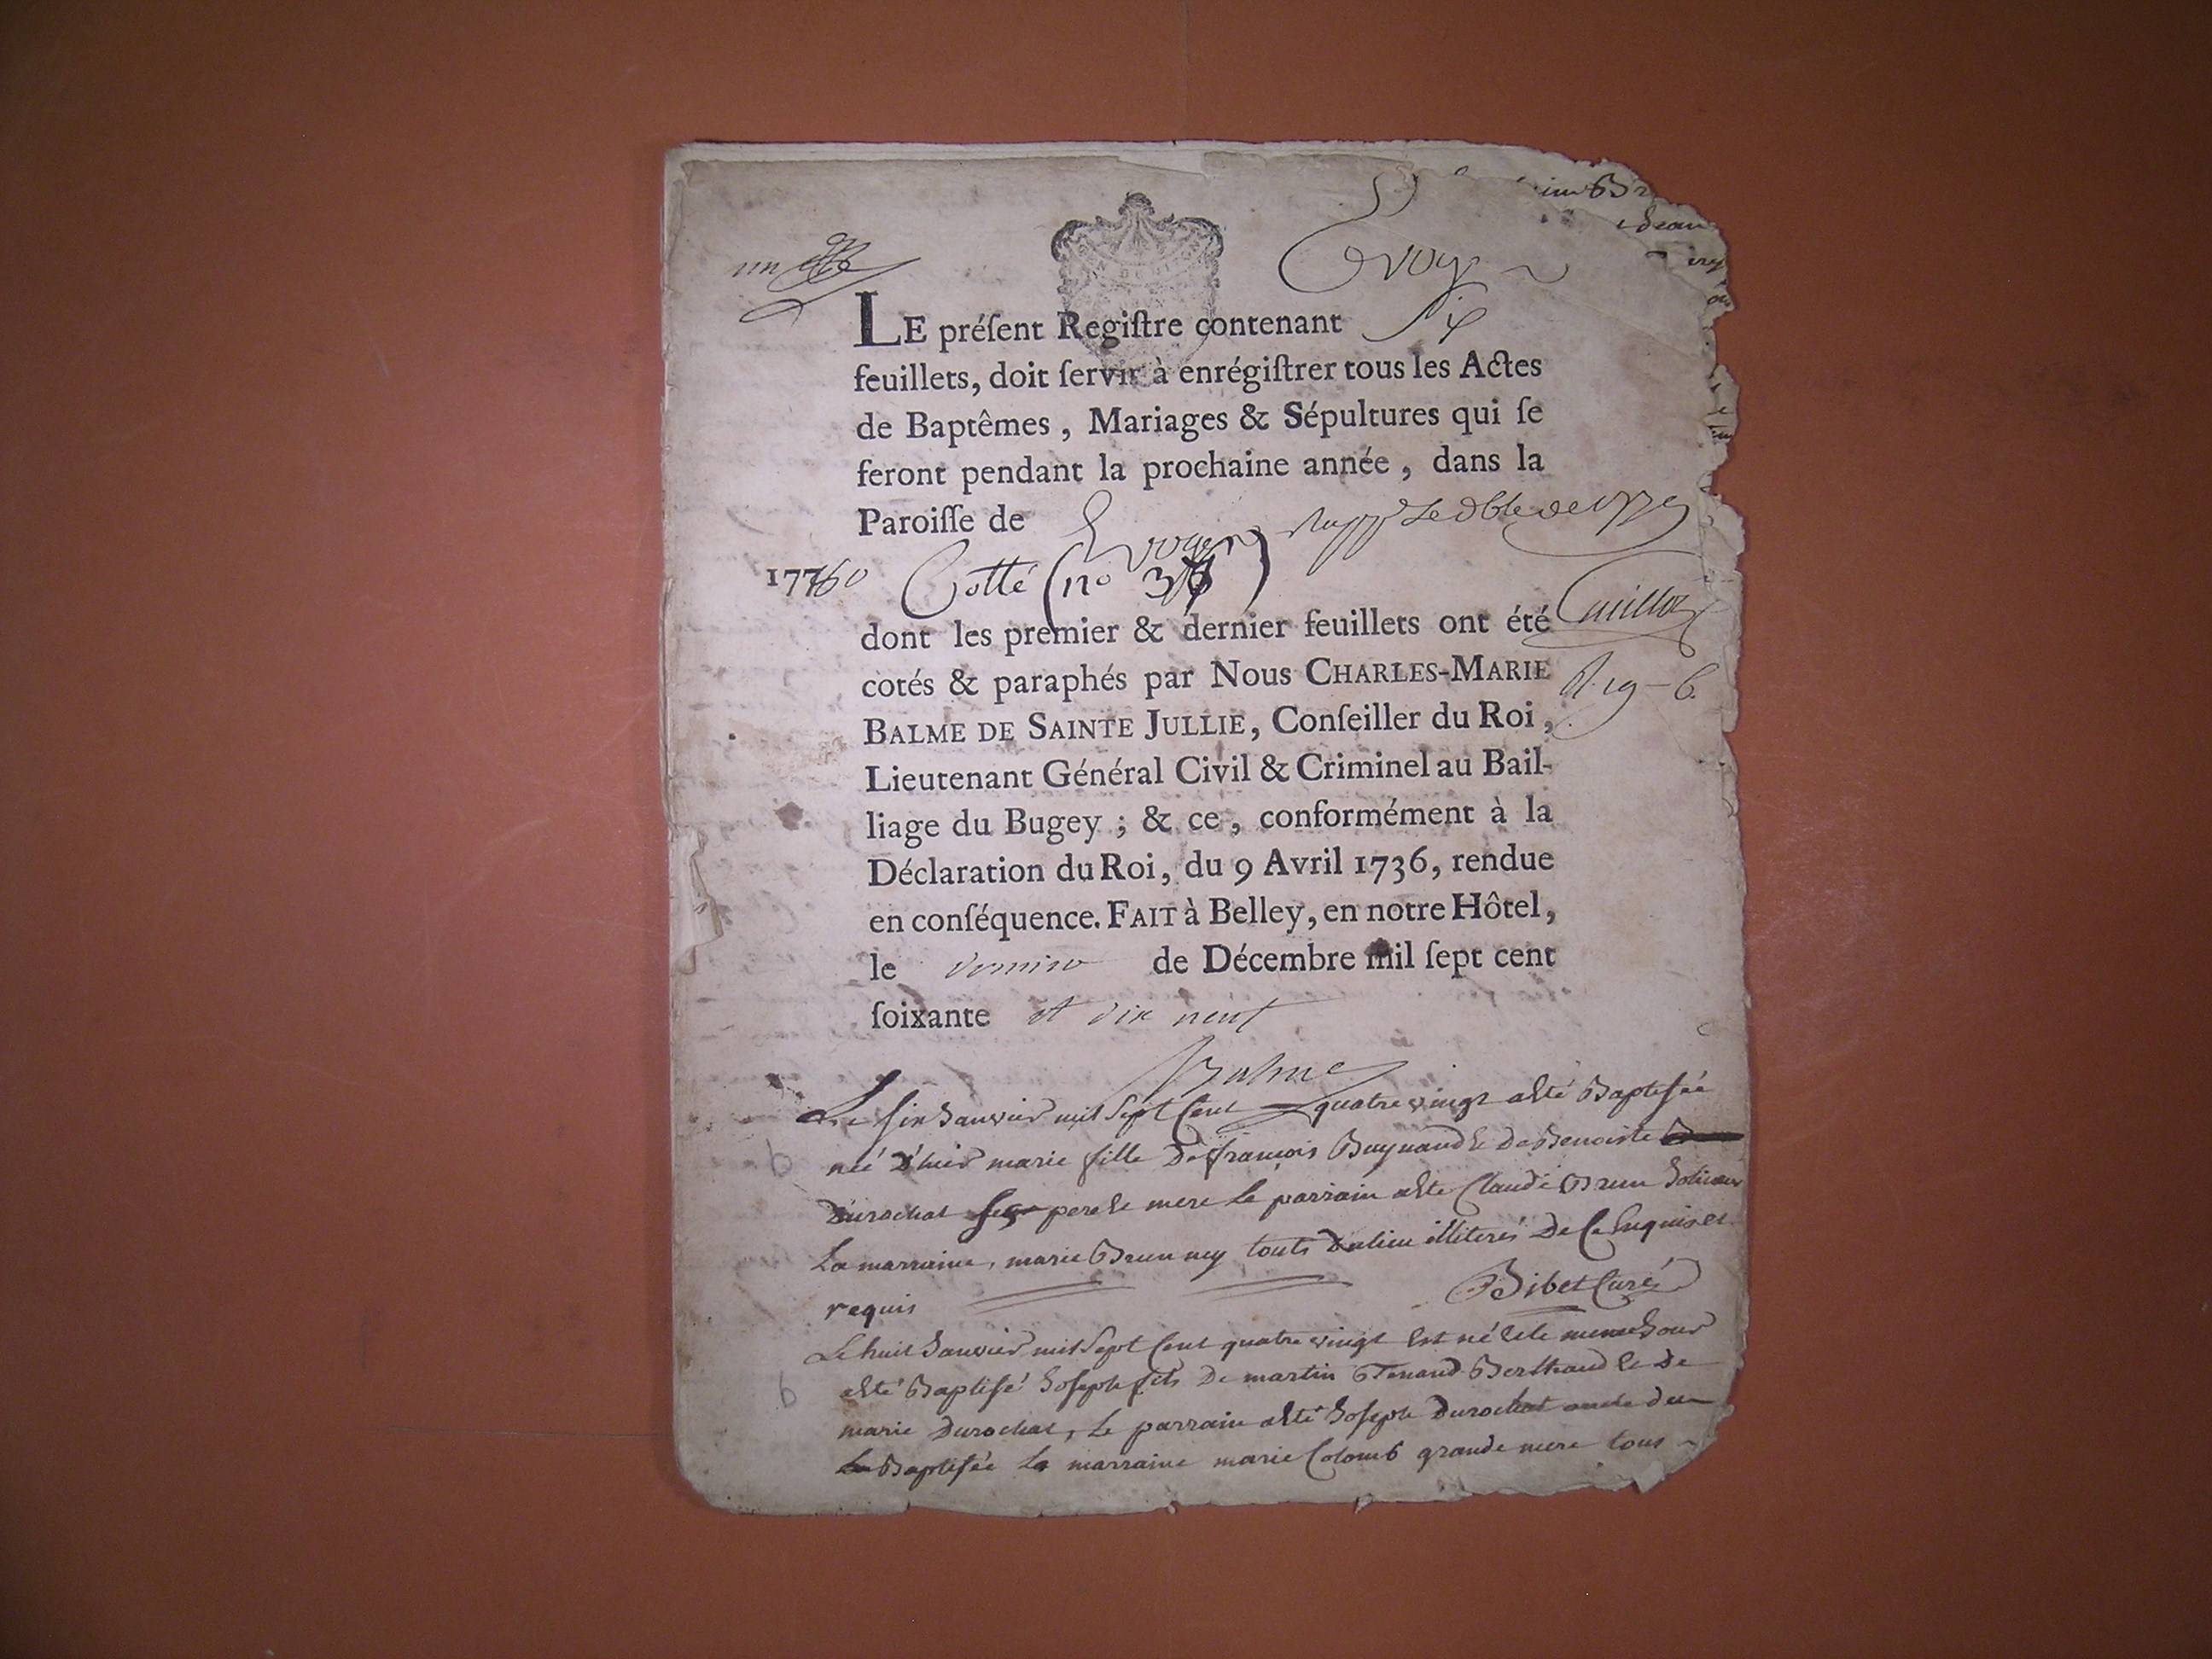 un
Evoge
LE préſent Regiſtre contenant six
feuillets, doit ſervir à enrégiſtrer tous les Actes
de Baptêmes, Mariages & Sépultures qui ſe
feront pendant la prochaine année, dans la
Paroiſſe de
1780 Cotté (no 37)
dont les premier & dernier feuillets ont été
cotés & paraphés par Nous CHARLES-MARIE
BALME DE SAINTE JULLIE, Conſeiller du Roi,
Lieutenant Général Civil & Criminel au Bail-
liage du Bugey ; & ce, conformément à la
Déclaration du Roi, du 9 Avril 1736, rendue
en conſéquence. FAIT à Belley, en notre Hôtel,
le de Décembre mil ſept cent
ſoixante et dix neuf
Balme
Le six Janvier mil Sept Cent quatre vingt a été Baptisée
née d'hier marie fille De françois Buynand & De Benoiste
Durochat pere & mere Le parrain a été Claude Brun
La marraine, marie Brunney touts Du lieu illiterés De Ce Enquis et
requis
Bibet Curé
Le huit Janvier mil Sept Cent quatre vingt Est né & le meme Jour
a été Baptisé Joseph fils De martin Tenand Berthaud & De
marie Durochat, Le parrain a été Joseph Durochat oncle du
Baptisée La marraine marie Colomb grande mere tous